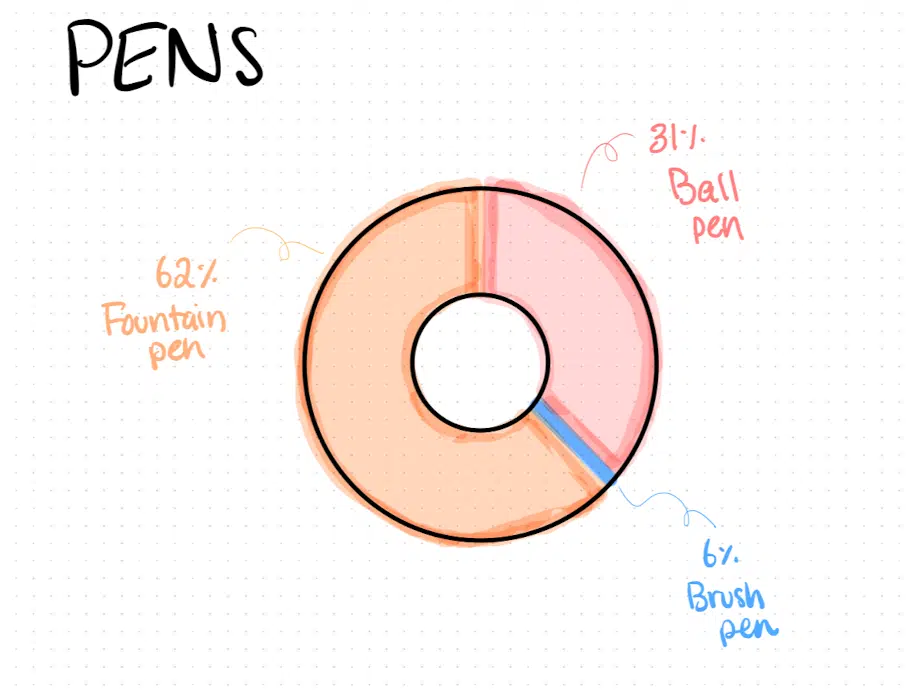 PENS
31%
Ball
pen
62%
Fountain
pen
6%
Brush
pen